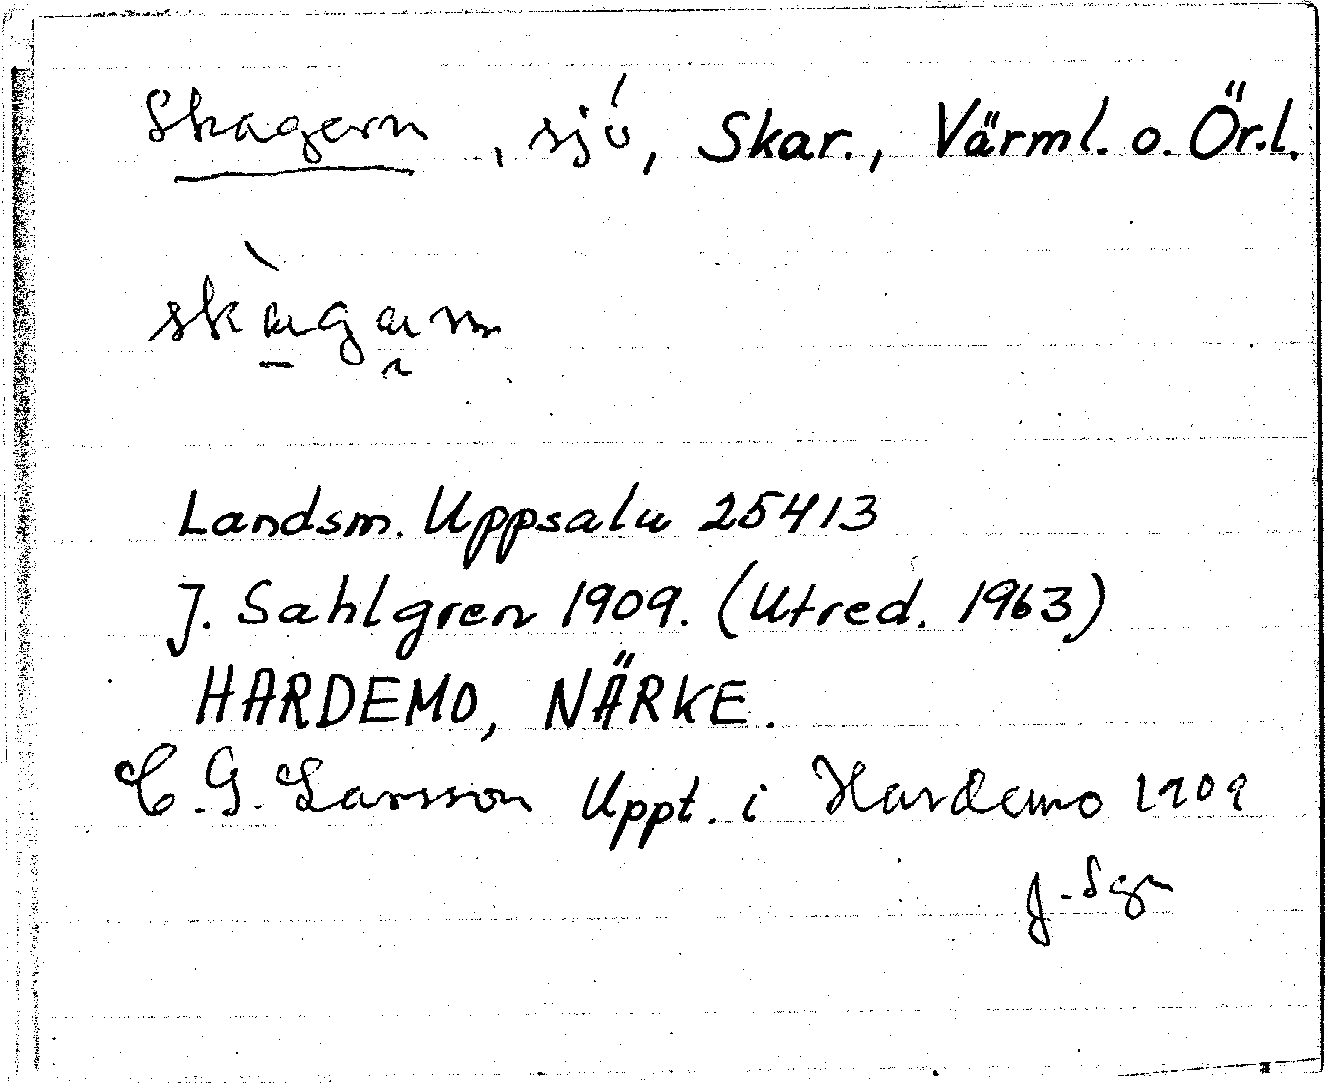 Skagern, sjö, Skar., Värml. o. Ör.l.
skàgarn
Landsm. Uppsala 25413
J. Sahlgren 1909. (Utred. 1963)
HARDEMO, NÄRKE.
C. G. Larsson Uppt. i Hardemo 1909
J. Sgn